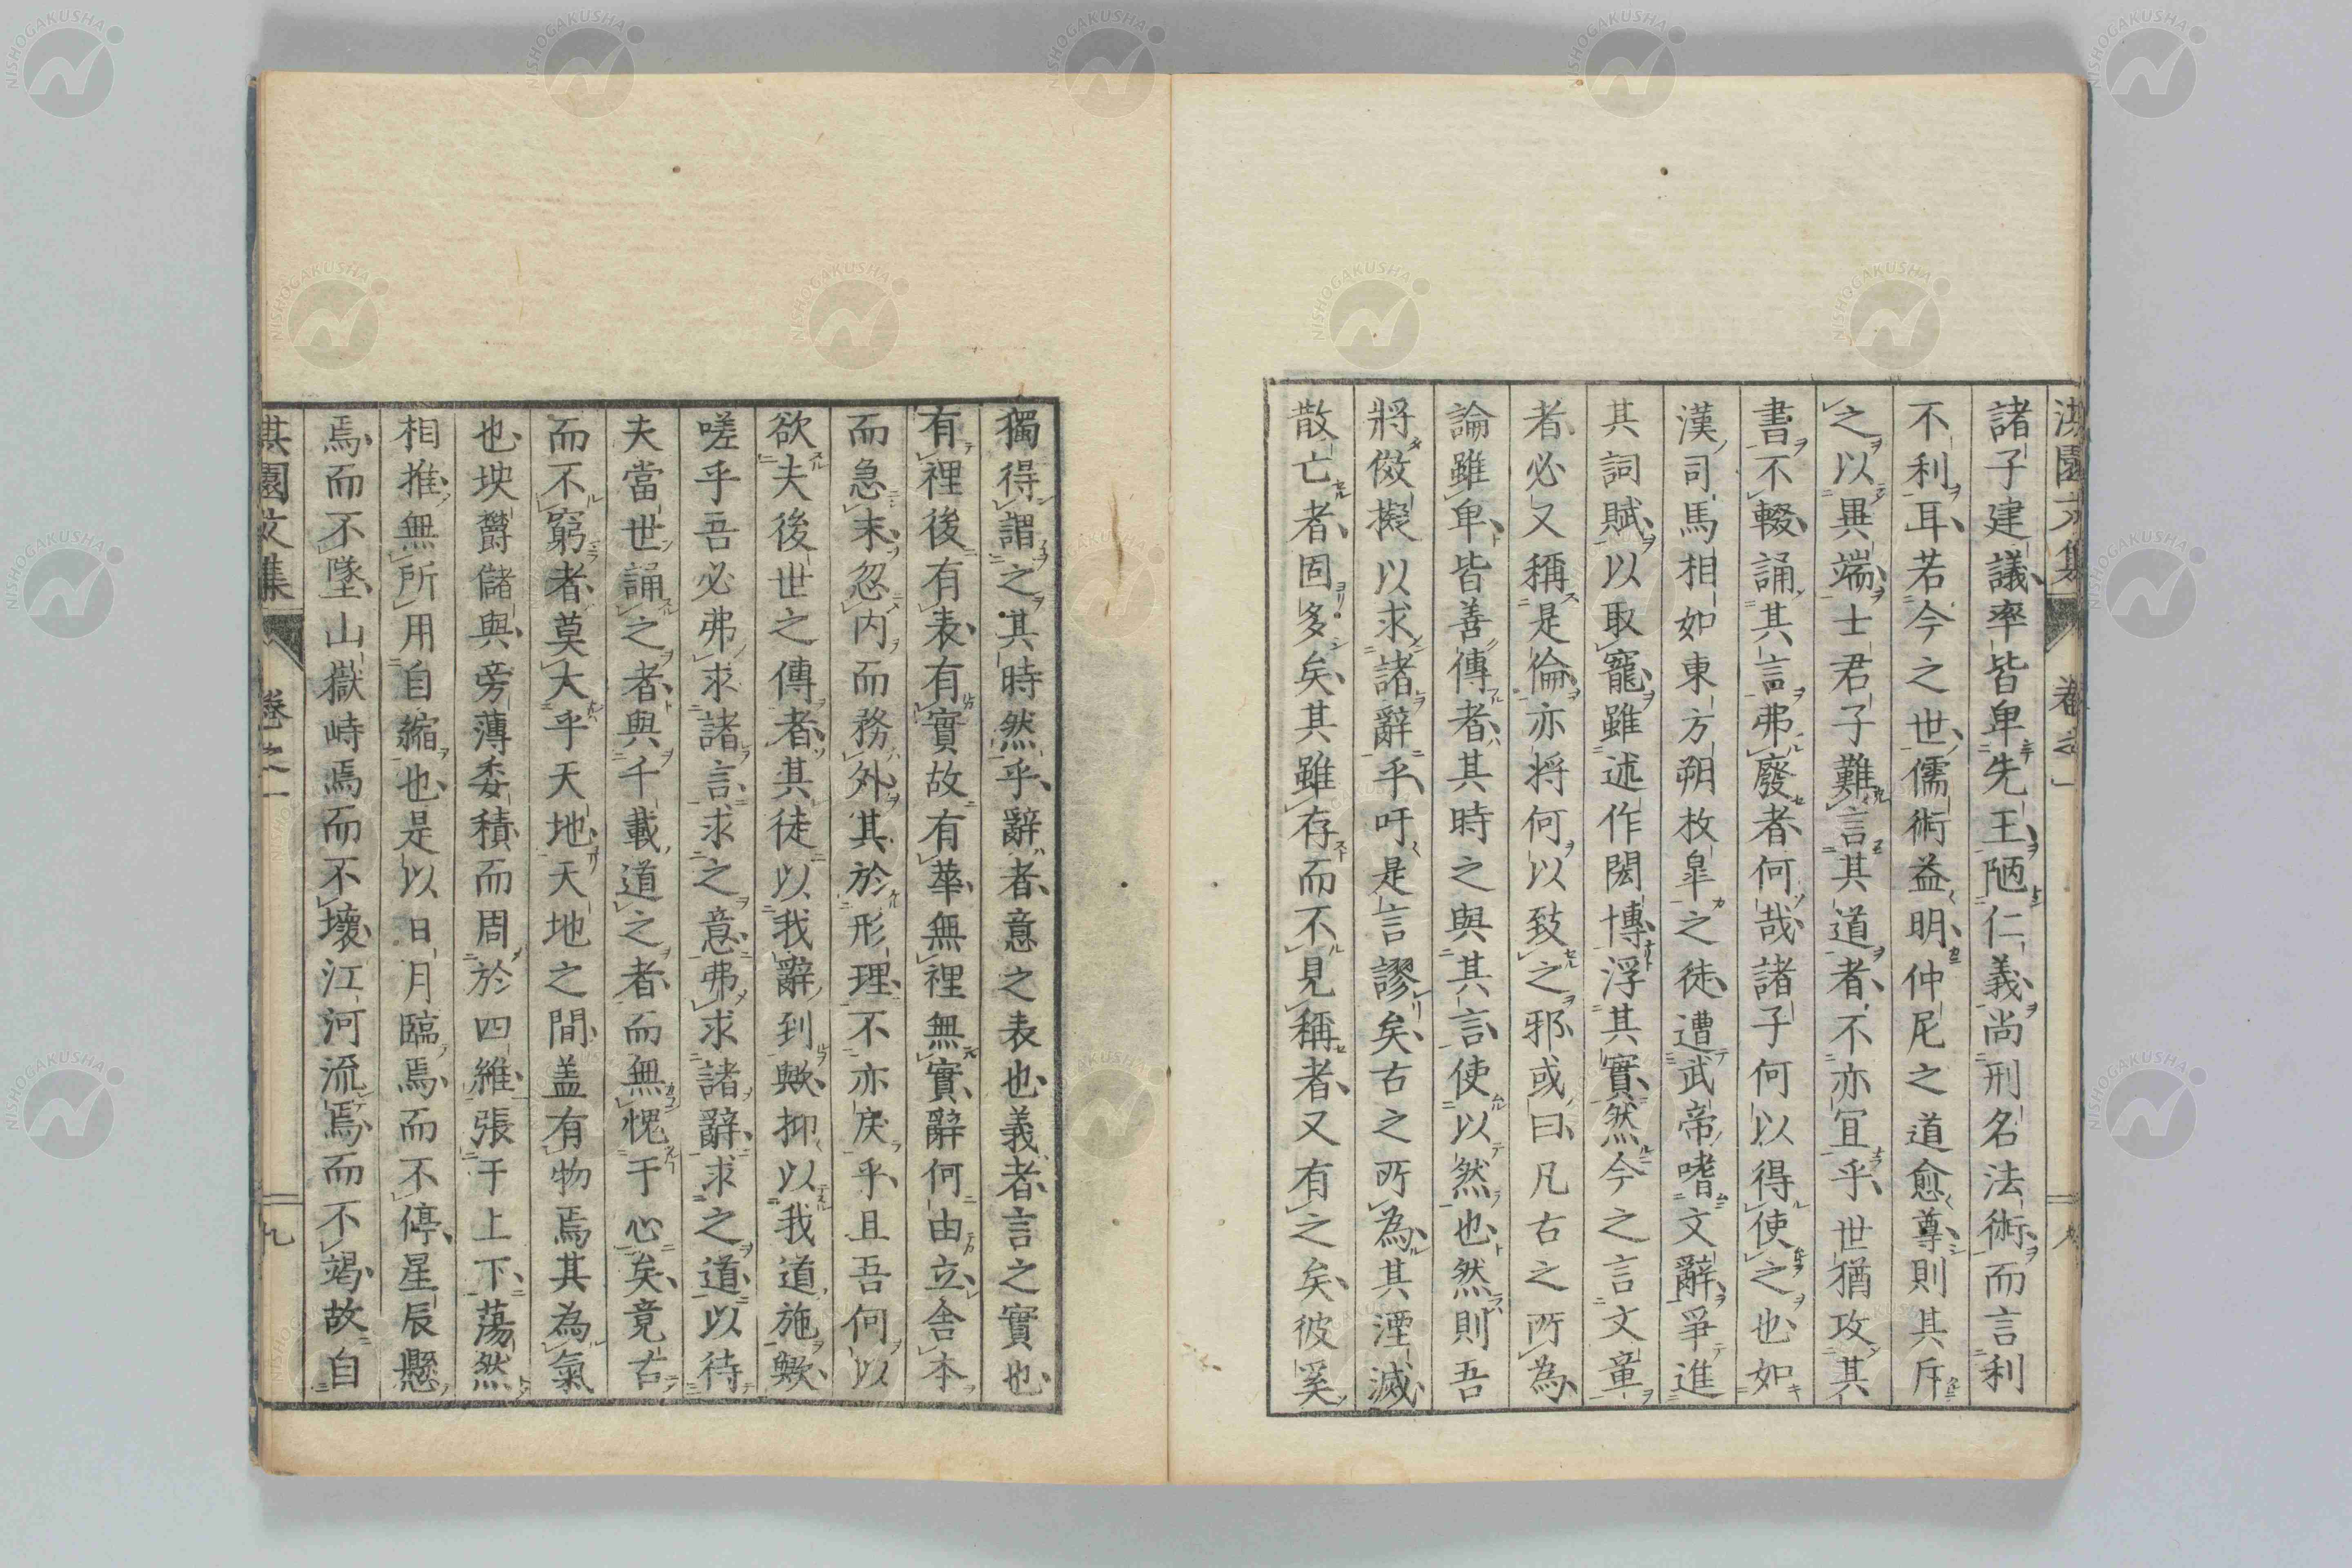 淇園文集 卷之一 九
諸子建議率皆卑先王陋仁義尚刑名法術而言利
不利耳若今之世儒術益明仲尼之道愈尊則其斥
之以異端士君子難言其道者不亦宜乎世猶攻其
書不輟誦其言弗廢者何哉諸子何以得使之也如
漢司馬相如東方朔枚皐之徒遭武帝嗜文辭爭進
其詞賦以取寵雖述作閎博浮其實然今之言文章
者必又稱是倫亦将何以致之邪或曰凡古之所為
論雖卑皆善傳者其時之與其言使以然也然則吾
將倣擬以求諸辭乎吁是言謬矣古之所為其湮滅
散亡者固多矣其雖存而不見稱者又有之矣彼奚
獨得謂之其時然乎辭者意之表也義者言之實也
有裡後有表有實故有華無裡無實辭何由立舍本
而急末忽内而務外其於形理不亦戾乎且吾何以
欲夫後世之傳者其徒以我辭到歟抑以我道施歟
嗟乎吾必弗求諸言求之意弗求諸辭求之道以待
夫當世誦之者與千載道之者而無愧于心矣竟古
而不窮者莫大乎天地天地之間盖有物焉其為氣
也坱欝儲與旁薄委積而周於四維張于上下蕩然
相推無所用自縮也是以日月臨焉而不停星辰懸
焉而不墜山嶽峙焉而不壞江河流焉而不竭故自
淇園文集 卷之一 九
NISHOGAKUSHA